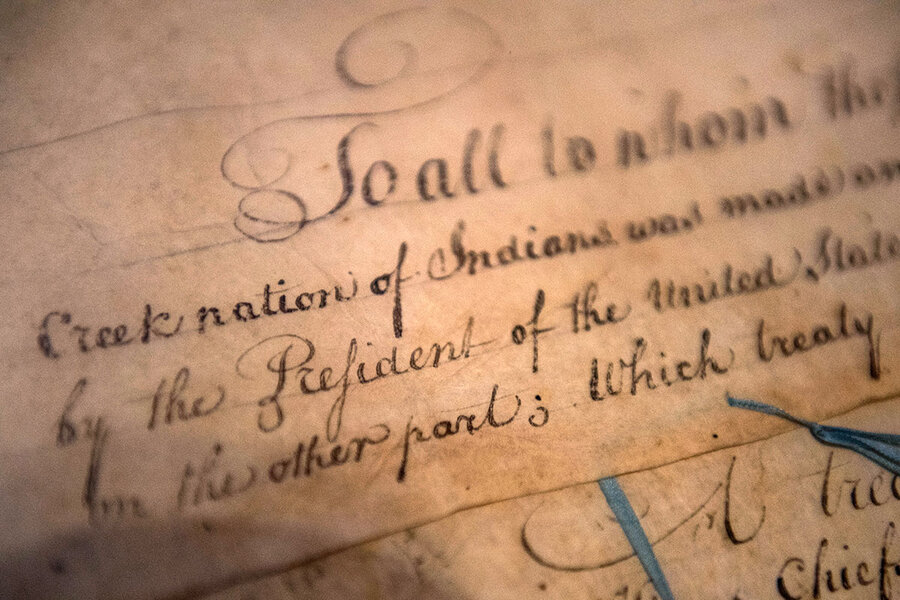 To all to whom the
Creek nation of Indians was made an
by the Preſident of the United State
on the other part; Which treaty
A trea
Chief